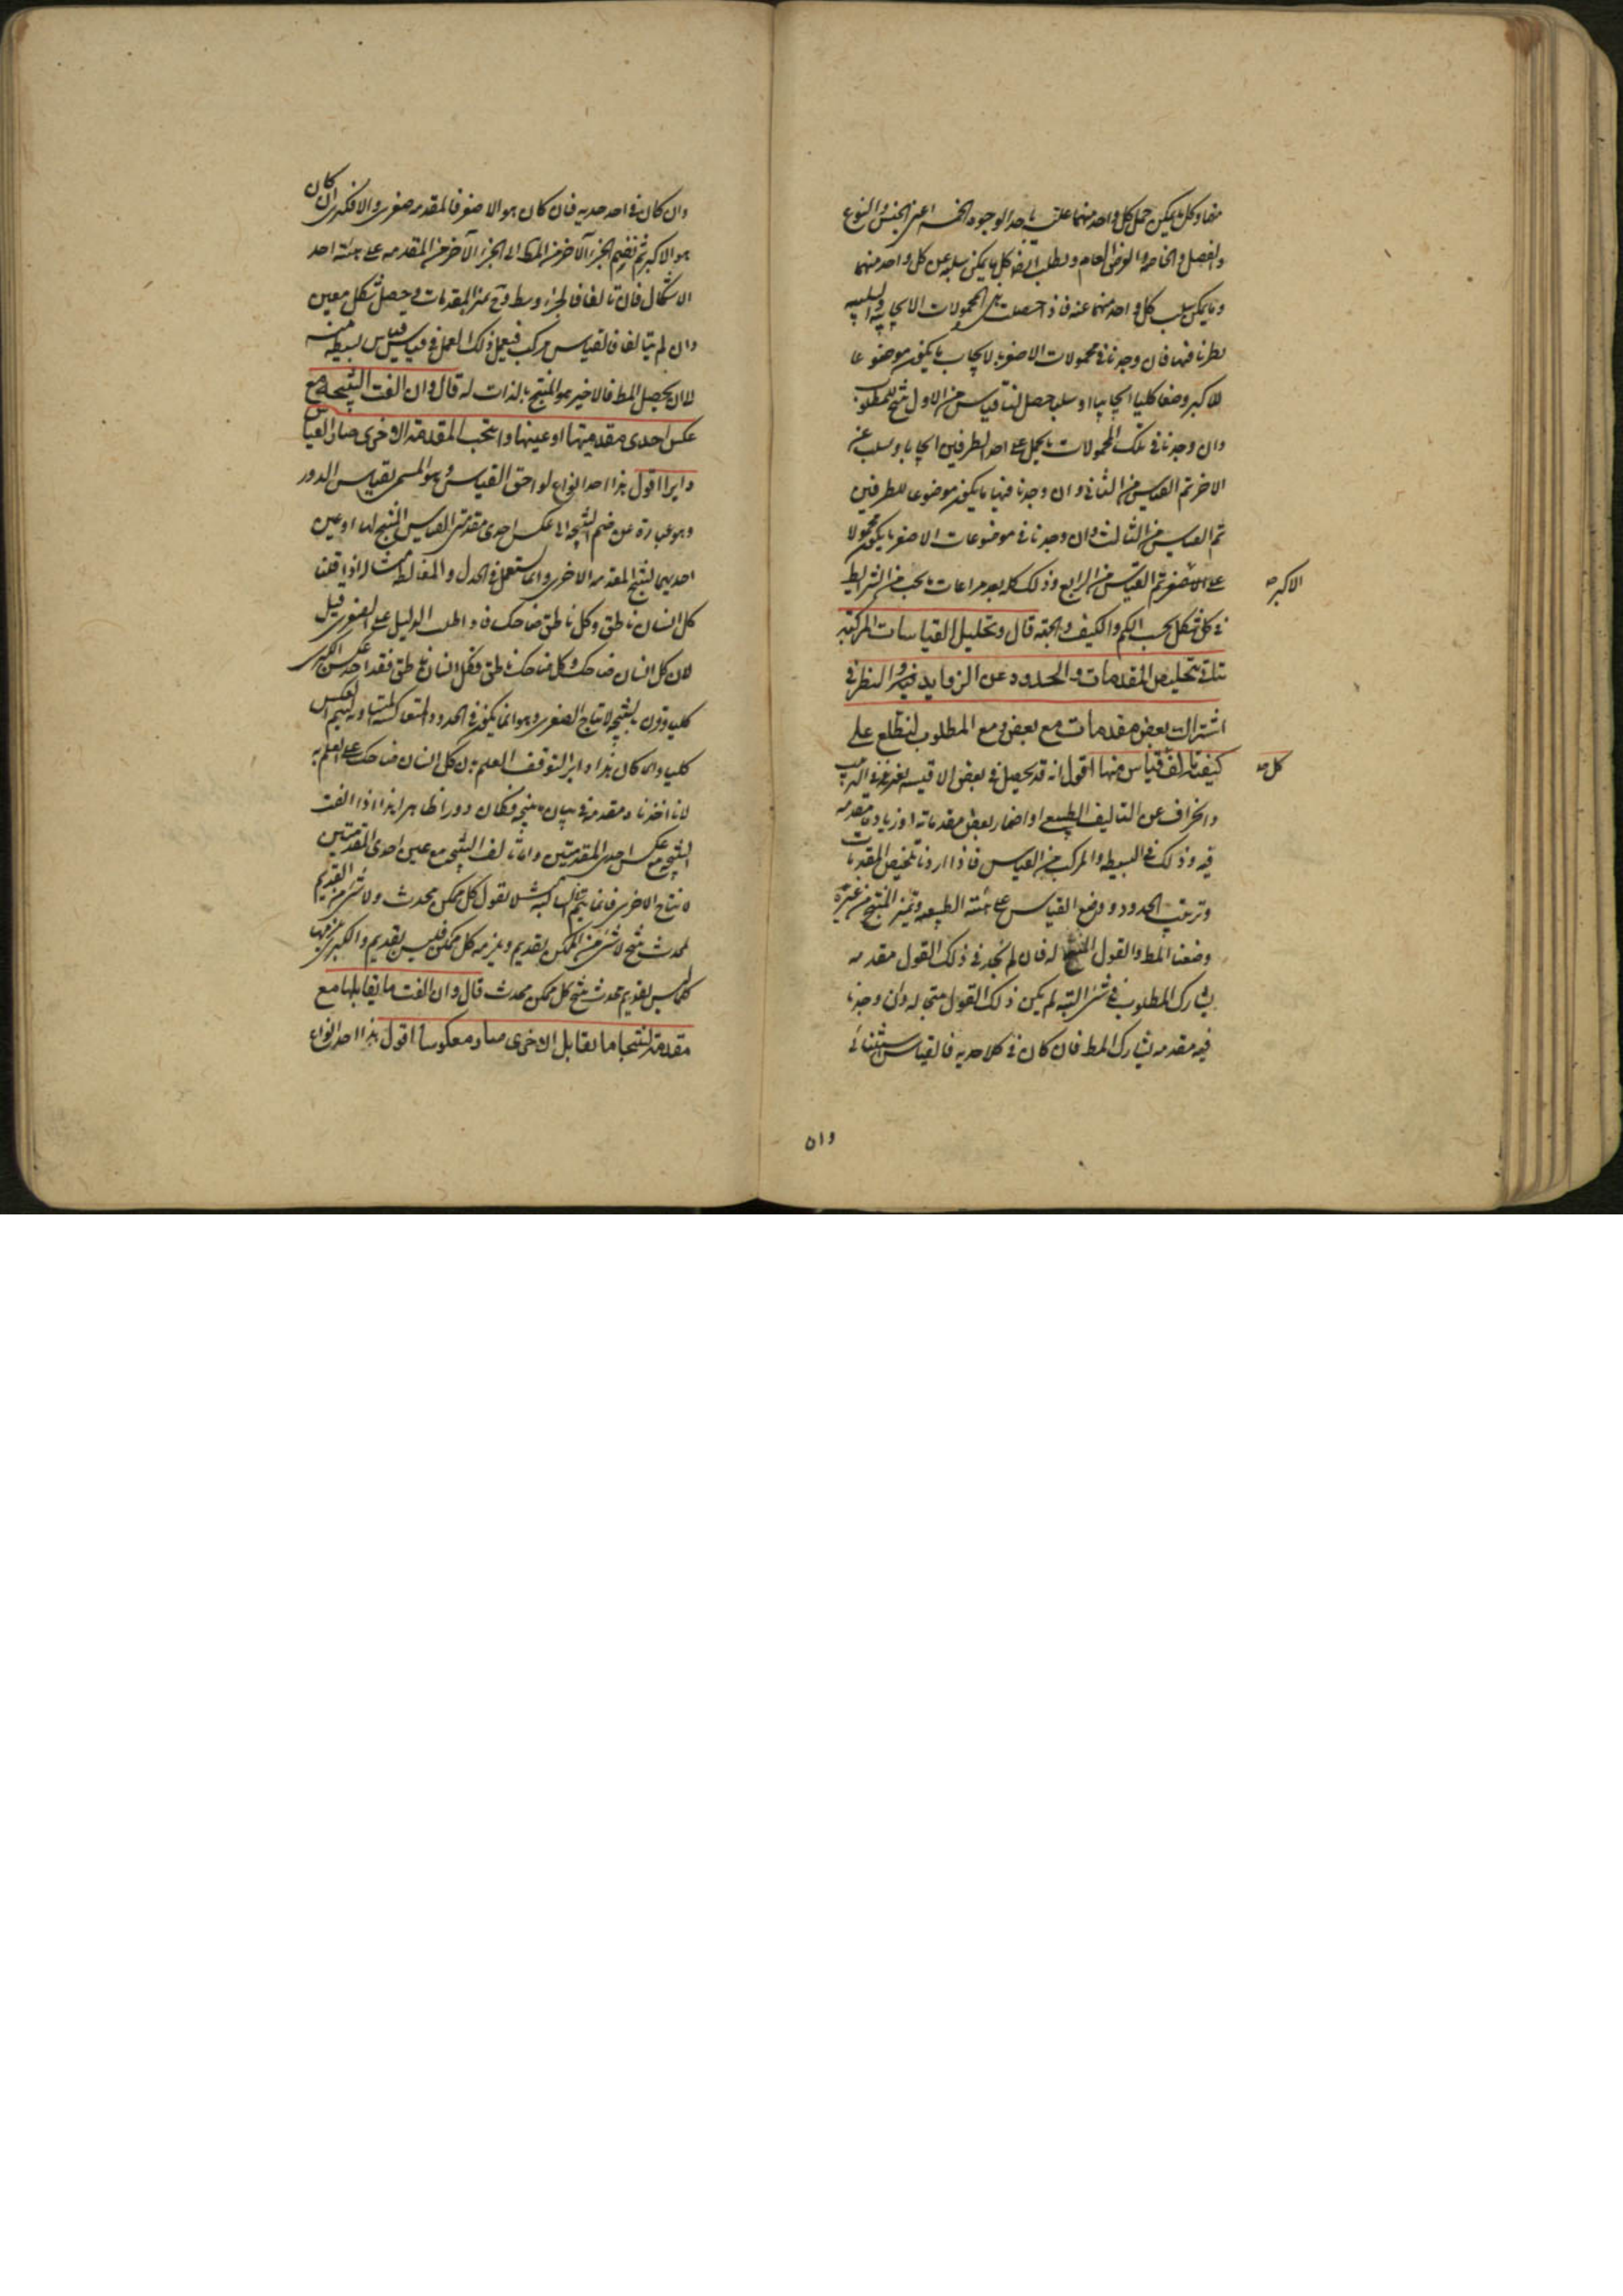 منها وكل ما يمكن حمل كل واحد منهما عليه باحد الوجوه الخمسة اعنى الجنس والنوع
والفصل والخاصة والعرض العام ويطلب ايضا كل ما يمكن سلبه عن كل واحد منهما
وما يمكن سلب كل واحد منهما عنه فاذا حصلت تلك المحمولات الايجابية والسلبية
نظرنا فيها فان وجدنا فى محمولات الاصغر بالايجاب ما يكون موضوعا
للاكبر وضعا كليا ايجابيا او سلبيا حصل لنا قياس من الاول ينتج للمطلوب
وان وجدنا فى تلك المحمولات ما يحمل على احد الطرفين ايجابا ويسلب عن
الاخر تم القياس من الثانى وان وجدنا فيها ما يكون موضوعا للطرفين
تم القياس من الثالث وان وجدنا فى موضوعات الاصغر ما يكون محمولا
على الاصغر تم القياس من الرابع وذلك كله بعد مراعات ما يجب من الشرايط
الاكبر صح
فى كل شكل بحسب الكم والكيف والجهة قال وتحليل القياسات المركبة
يتاتى بتخليص المقدمات والحدود عن الزوايد فيه والنظر فى
اشتراك بعض مقدمات مع بعض ومع المطلوب ليطلع على
كيفية تالف قياس منها اقول انه قد يحصل فى بعض الاقيسة تغير فى الترتيب
كل صح
وانحراف عن التاليف الطبيعى او اضمار بعض مقدماته او زيادة مقدمة
فيه وذلك فى البسيط والمركب من القياس فاذا اردنا تلخيص المقدمات
وترتيب الحدود ووضع القياس على هيئته الطبيعية وتميز المنتج من غيره
وضعنا المط والقول المنتج له فان لم نجد فى ذلك القول مقدمة
يشارك المطلوب فى شئ البتة لم يكن ذلك القول منتجا له وان وجدنا
فيه مقدمة يشارك المط فان كان فى كلا حديه فالقياس استثنائى
وان
وان كان فى احد حديه فان كان هو الاصغر فالمقدمة صغرى والا فكبرى ان كان
هو الاكبر ثم نضم الجزء الآخر من المط الى الجزء الآخر من المقدمة على هيئة احد
الاشكال فان تالفا فالجزء وسط وح تميز المقدمات ويحصل شكل معين
وان لم يتالفا فالقياس مركب فيعمل ذلك العمل فى قياس قياس بسيط منه
الا ان يحصل المط فالاخير هو المنتج بالذات له قال وان الفت النتيجة مع
عكس احدى مقدمتيها او عينها وانتجت المقدمة الاخرى صار القياس
دايرا اقول هذا احد انواع لواحق القياس وهو المسمى بقياس الدور
وهو عبارة عن ضم النتيجة الى عكس احدى مقدمتى القياس المنتج لها او عين
احديهما لينتج المقدمة الاخرى وانما يستعمل فى الجدل والمغالطة مثاله اذا قلنا
كل انسان ناطق وكل ناطق ضاحك فاذا طلب الدليل على الصغرى قيل
لان كل انسان ضاحك وكل ضاحك ناطق فكل انسان ناطق فقد اخذ عكس الكبرى
كليا وقرن بالنتيجة لانتاج الصغرى وهو انما يكون فى الحدود المتعاكسة المتساوية ليتم العكس
كليا وانما كان هذا دايرا لتوقف العلم بان كل انسان ضاحك على العلم به
لانا اخذناه مقدمة فى بيان ما ينتجه فكان دورا ظاهرا هذا اذا الفت
النتيجة مع عكس احدى المقدمتين واما تالف النتيجة مع عين احدى المقدمتين
لانتاج الاخرى فانما يتم فى السالبة مثلا تقول كل ممكن محدث ولا شئ من القديم
بمحدث ينتج لا شئ من الممكن بقديم ويلزمه كل ممكن فليس بقديم والكبرى يلزمها
كلما ليس بقديم محدث ينتج كل ممكن محدث قال وان الفت ما يقابلها مع
مقدمة لينتجا ما يقابل الاخرى صار معكوسا اقول هذا احد انواع